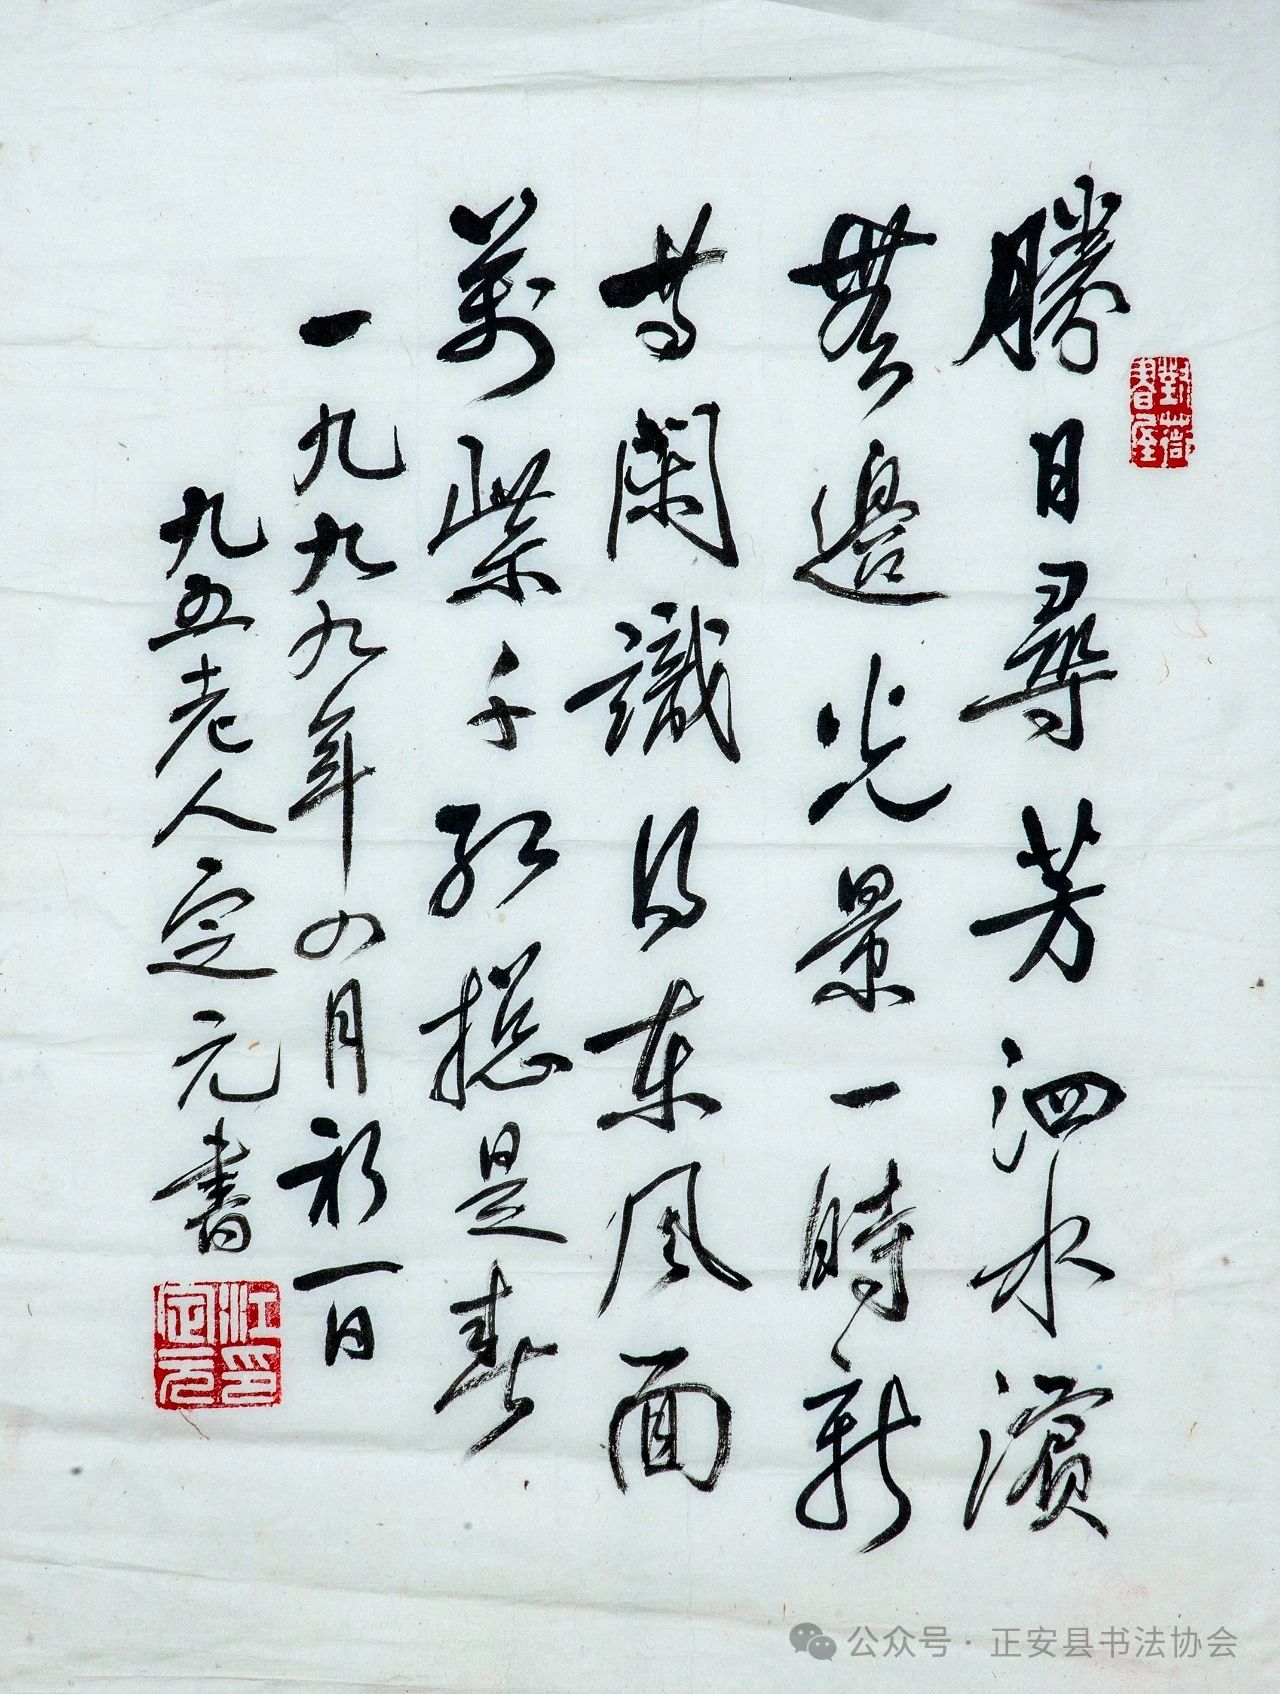 勝日尋芳泗水濱
無邊光景一時新
等閑識得東風面
萬紫千紅摠是春
一九九九年四月初一日
九五老人定元書
江定元印
公众号 · 正安县书法协会